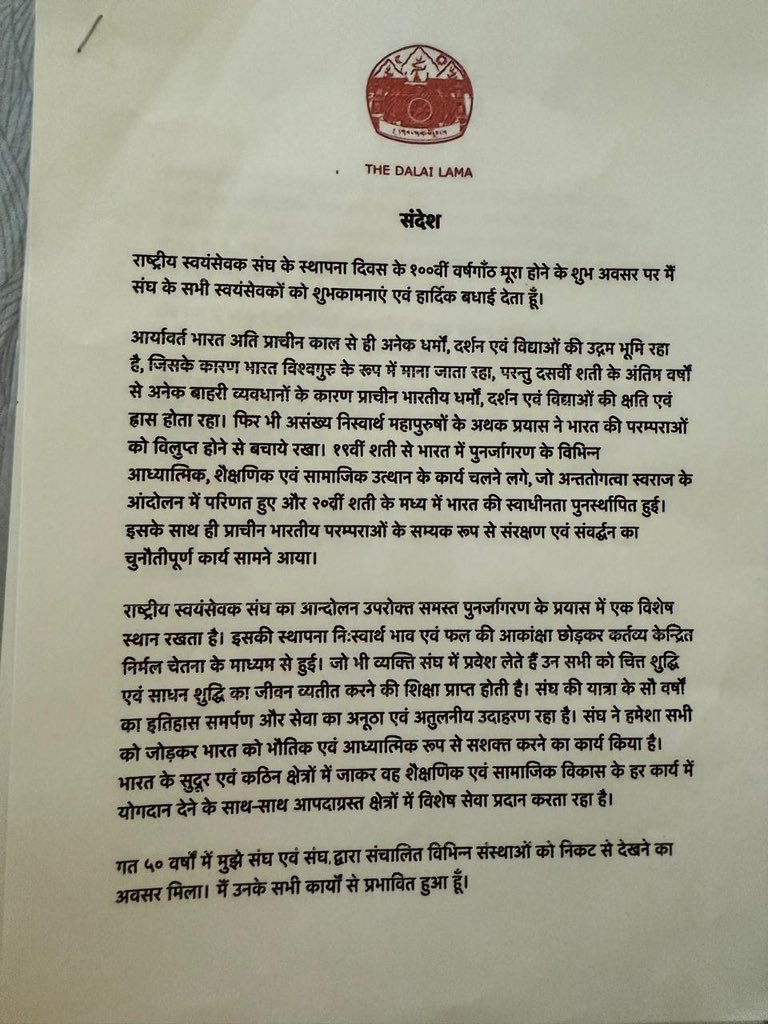 THE DALAI LAMA
संदेश
राष्ट्रीय स्वयंसेवक संघ के स्थापना दिवस के १००वीं वर्षगाँठ मूरा होने के शुभ अवसर पर मैं
संघ के सभी स्वयंसेवकों को शुभकामनाएं एवं हार्दिक बधाई देता हूँ।
आर्यावर्त भारत अति प्राचीन काल से ही अनेक धर्मों, दर्शन एवं विद्याओं की उद्गम भूमि रहा
है, जिसके कारण भारत विश्वगुरु के रूप में माना जाता रहा, परन्तु दसवीं शती के अंतिम वर्षों
से अनेक बाहरी व्यवधानों के कारण प्राचीन भारतीय धर्मों, दर्शन एवं विद्याओं की क्षति एवं
ह्रास होता रहा। फिर भी असंख्य निस्वार्थ महापुरुषों के अथक प्रयास ने भारत की परम्पराओं
को विलुप्त होने से बचाये रखा। १९वीं शती से भारत में पुनर्जागरण के विभिन्न
आध्यात्मिक, शैक्षणिक एवं सामाजिक उत्थान के कार्य चलने लगे, जो अन्ततोगत्वा स्वराज के
आंदोलन में परिणत हुए और २०वीं शती के मध्य में भारत की स्वाधीनता पुनर्स्थापित हुई।
इसके साथ ही प्राचीन भारतीय परम्पराओं के सम्यक रूप से संरक्षण एवं संवर्द्धन का
चुनौतीपूर्ण कार्य सामने आया।
राष्ट्रीय स्वयंसेवक संघ का आन्दोलन उपरोक्त समस्त पुनर्जागरण के प्रयास में एक विशेष
स्थान रखता है। इसकी स्थापना निःस्वार्थ भाव एवं फल की आकांक्षा छोड़कर कर्तव्य केन्द्रित
निर्मल चेतना के माध्यम से हुई। जो भी व्यक्ति संघ में प्रवेश लेते हैं उन सभी को चित्त शुद्धि
एवं साधन शुद्धि का जीवन व्यतीत करने की शिक्षा प्राप्त होती है। संघ की यात्रा के सौ वर्षों
का इतिहास समर्पण और सेवा का अनूठा एवं अतुलनीय उदाहरण रहा है। संघ ने हमेशा सभी
को जोड़कर भारत को भौतिक एवं आध्यात्मिक रूप से सशक्त करने का कार्य किया है।
भारत के सुदूर एवं कठिन क्षेत्रों में जाकर वह शैक्षणिक एवं सामाजिक विकास के हर कार्य में
योगदान देने के साथ-साथ आपदाग्रस्त क्षेत्रों में विशेष सेवा प्रदान करता रहा है।
गत ५० वर्षों में मुझे संघ एवं संघ द्वारा संचालित विभिन्न संस्थाओं को निकट से देखने का
अवसर मिला। मैं उनके सभी कार्यों से प्रभावित हुआ हूँ।